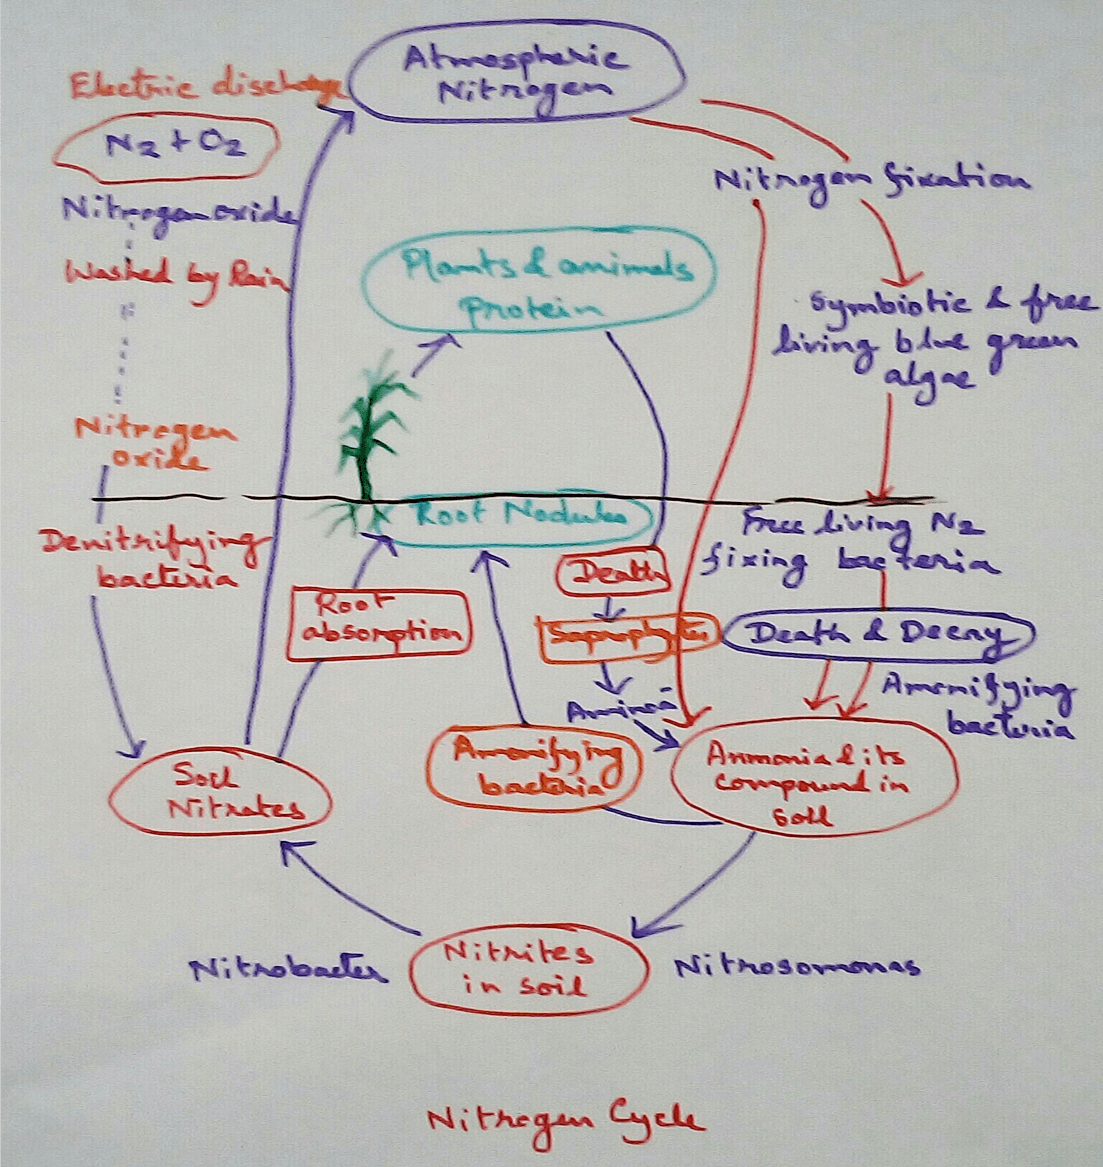 Atmospheric
Nitrogen
Electric discharge
N2 + O2
Nitrogen oxide
Washed by Rain
Nitrogen
oxide
Nitrogen fixation
Plants & animals
protein
Symbiotic & free
living blue green
algae
Root Nodules
Free living N2
fixing bacteria
Denitrifying
bacteria
Death
Root
absorption
Saprophytes
Death & Decay
Amonifying
bacteria
Amonifying
bacteria
Ammonia & its
compound in
soil
Soil
Nitrates
Nitrobacter
Nitrites
in soil
Nitrosomonas
Nitrogen Cycle